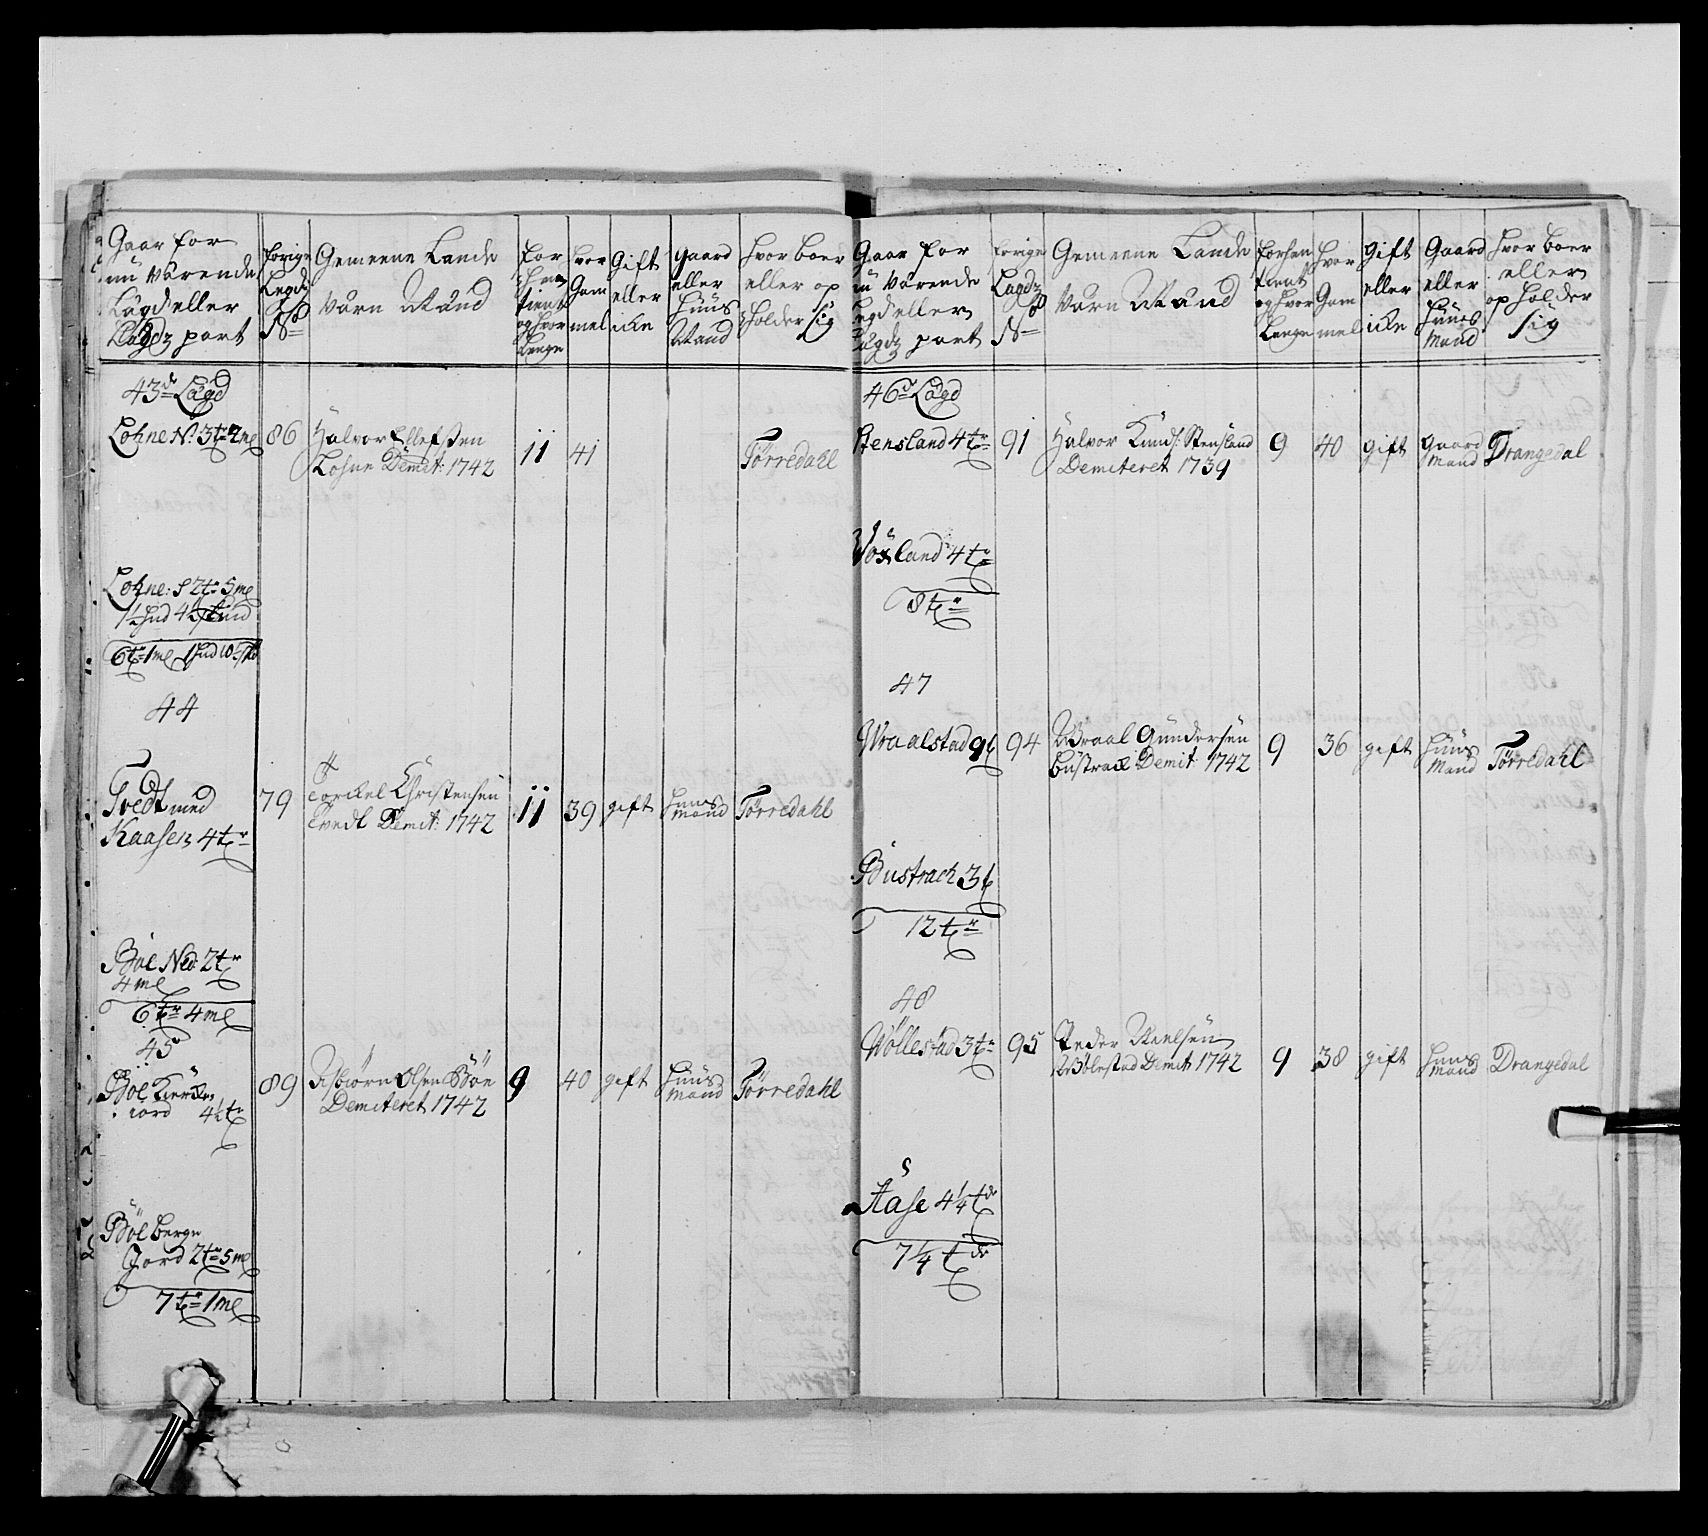 Gaar for
nu værende
Lægd eller
Lægdz part
forige
Legdz
No
Gemeene Lands
værn Mand
for
tient
og hvor
Længe
hvor
Gam
mel
Gift
eller
icke
Gaard
eller
Huus
Mand
hvor boer
eller op
holder sig
43de Lægd
Lohne N: 3 tr 2 ml
86
Halvor Ellefsen
Lohne Demit: 1742
11
41
Törredahl
Lohne: S 2 tr 5 ml
1½ hud 4½ skind
6 tr 1 ml
44
Tvedt med
Kaasen 4 tr
79
Torckel Christensen
Tvedt Demit: 1742
11
39
gift
Huus
Mand
Törredahl
Böe Ned: 2 tr
4 ml
6 tr 4 ml
45
Böe
iord 4½ tr
89
Asbiörn Olsen Böe
Demiteret 1742
9
40
gift
Huus
Mand
Törredahl
Böe berge
Jord 2 tr 5 ml
7 tr 1 ml
Gaar for
nu værende
Legd eller
Lægdz part
forige
Lægdz
No
Gemeene Lands
værn Mand
forhen
tient
og hvor
Længe
hvor
Gam
mel
Gift
eller
icke
Gaard
eller
Huus
Mand
hvor boer
eller
op holder
sig
46de Lægd
Stensland 4 tr
91
Halvor Knuds: Stensland
Demiteret 1739
9
40
gift
Gaard
Mand
Drangedal
Voxland 4 tr
8 tr
47
Wraalstad 9 t
94
Wraal Gundersen
Bustrack Demit: 1742
9
36
gift
Huus
Mand
Törredahl
Bustrach 3 t
12 tr
48
Wöllestad 3 tr
95
Peder Neelsen
Wölestad Demit: 1742
9
38
gift
Huus
Mand
Drangedal
Aase 4¼ tdr
7¼ tdr